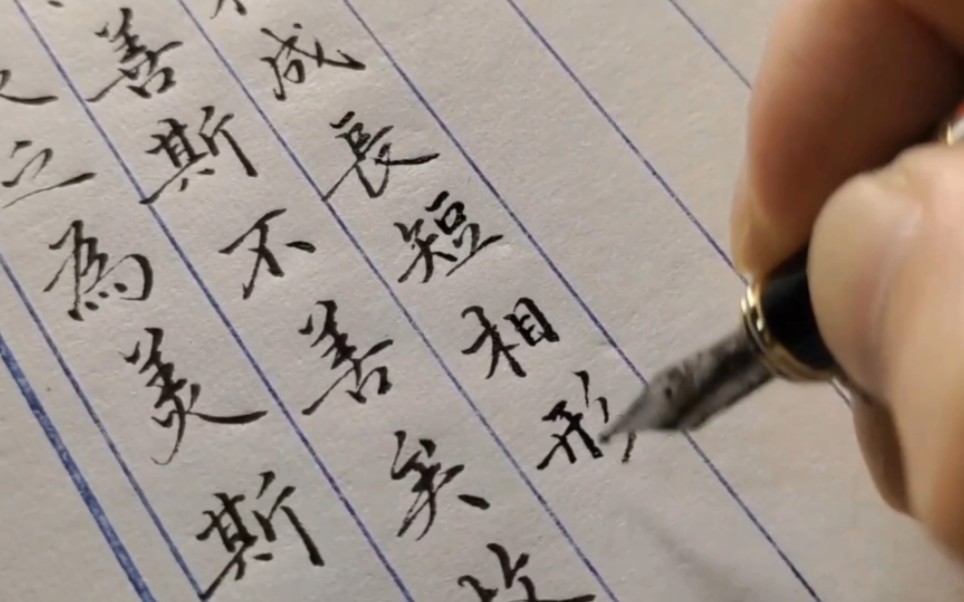 之為美斯
善斯不善矣故
成長短相形